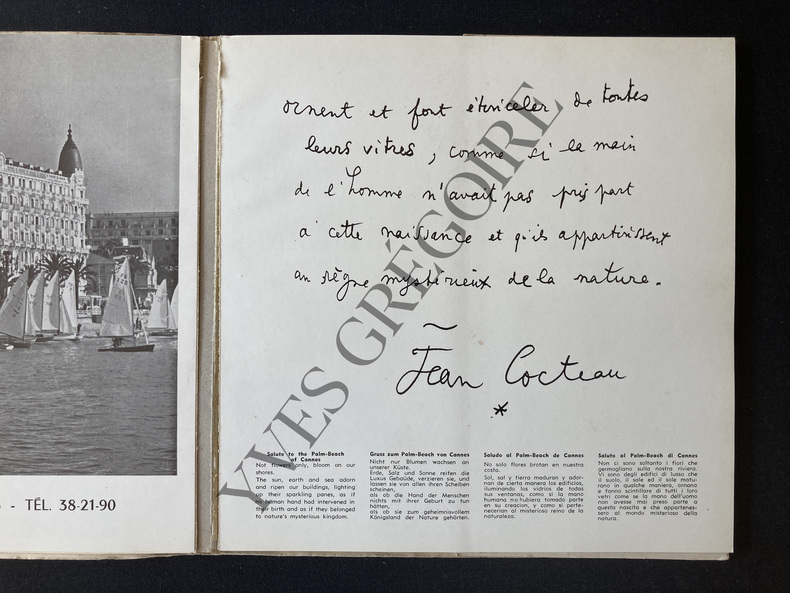 - TÉL. 38-21-90
ornent et font étinceler de toutes
leurs vitres, comme si la main
de l'homme n'avait pas pris part
à cette naissance et qu'ils appartinssent
au règne mystérieux de la nature.
Jean Cocteau
*
YVES GRÉGOIRE
Salute to the Palm-Beach
of Cannes
Not flowers only, bloom on our
shores.
The sun, earth and sea adorn
and ripen our buildings, lighting
up their sparkling panes, as if
no human hand had intervened in
their birth and as if they belonged
to nature's mysterious kingdom.
Gruss zum Palm-Beach von Cannes
Nicht nur Blumen wachsen an
unserer Küste.
Erde, Salz und Sonne reifen die
Luxus Gebäude, verzieren sie, und
lassen sie von allen ihren Scheiben
scheinen,
als ob die Hand der Menschen
nichts mit ihrer Geburt zu tun
hätten,
als ob sie zum geheimnisvollem
Königsland der Natur gehörten.
Saludo al Palm-Beach de Cannes
No solo flores brotan en nuestra
costa.
Sol, sal y tierra maduran y ador-
nan de cierta manera los edificios,
iluminando los vidrios de todas
sus ventanas, como si la mano
humana no hubiera tomado parte
en su creacion, y como si perte-
necerian al misterioso reino de la
naturaleza.
Saluto al Palm-Beach di Cannes
Non ci sono soltanto i fiori che
germogliano sulla nostra riviera.
Vi sono degli edifici di lusso che
il suolo, il sale ed il sole matu-
rano in qualche maniera, ornano
e fanno scintillare di tutti i loro
vetri come se la mano dell'uomo
non avesse mai preso parte a
questa nascita e che appartenes-
sero al mondo misterioso della
natura.